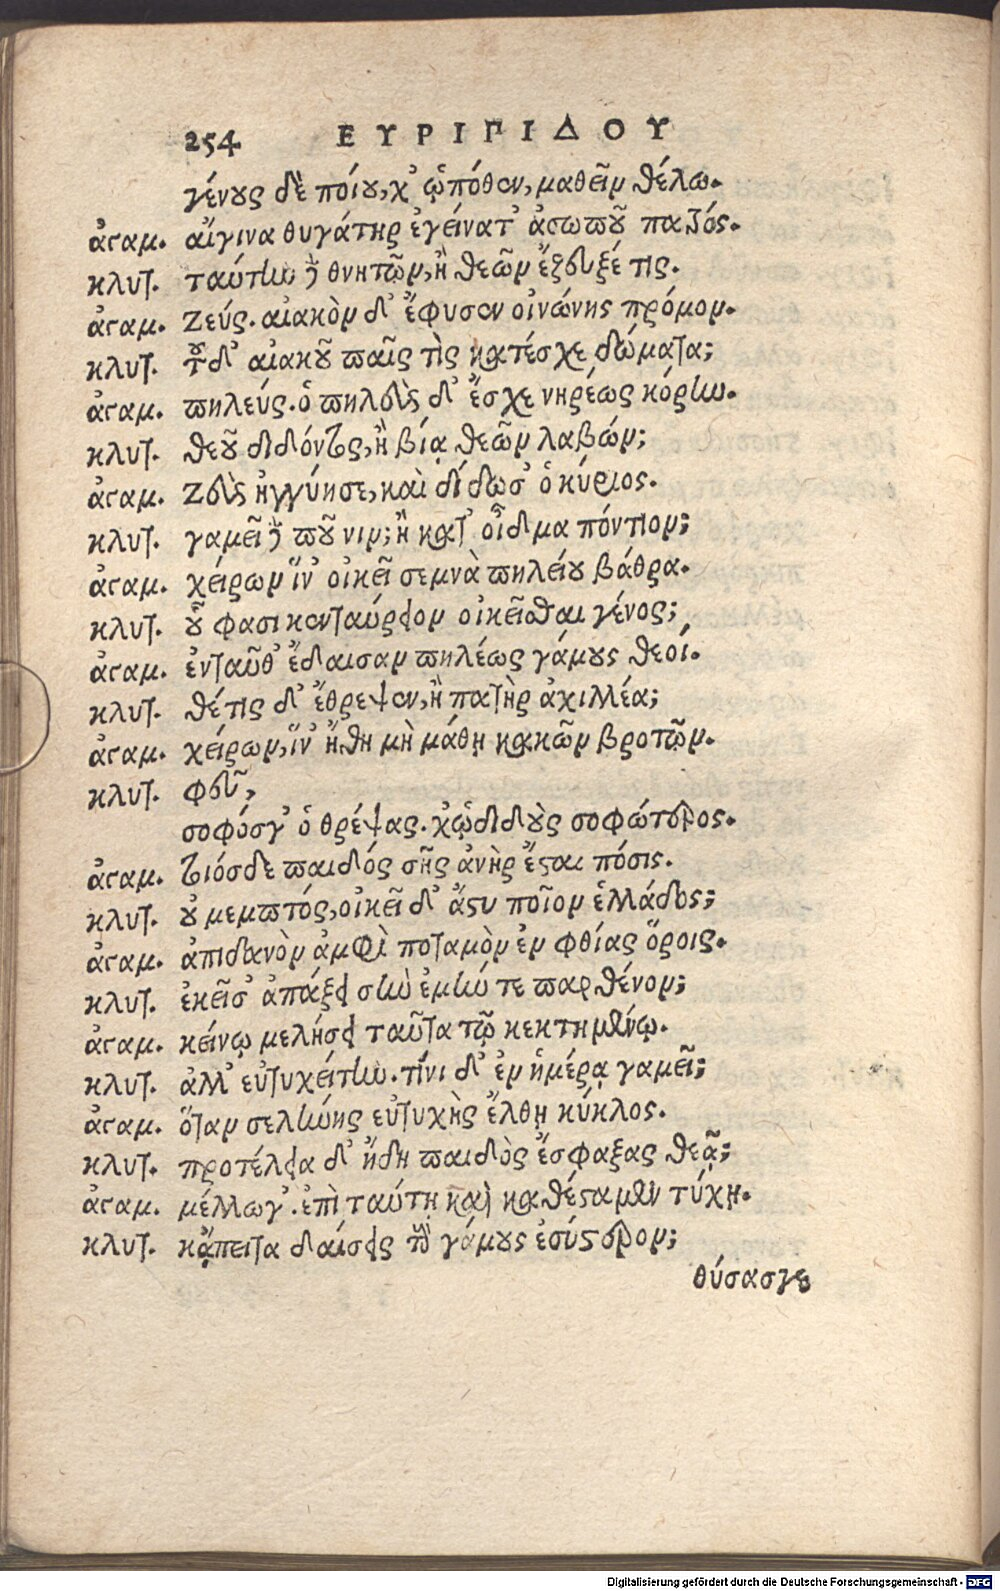 254 ΕΥΡΙΠΙΔΟΥ
γένους δὲ ποίου, χ' ᾡπόθεν, μαθεῖν θέλω.
ἀγαμ. αἴγινα θυγάτηρ ἐγείνατ' ἀσωποῦ πατρός.
κλυτ. ταύτην δὲ θνητῶν, ἢ θεῶν ἔξευξέ τις.
ἀγαμ. Ζεύς. αἰακὸν δ' ἔφυσεν οἰνώνης πρόμον.
κλυτ. τοῦ δ' αἰακοῦ παῖς τὶς κατέσχε δώματα;
ἀγαμ. πηλεύς. ὁ πηλεὺς δ' ἔσχε νηρέως κόρην.
κλυτ. θεοῦ διδόντος, ἢ βίᾳ θεῶν λαβών;
ἀγαμ. Ζεὺς ἠγγύησε, καὶ δίδωσ' ὁ κύριος.
κλυτ. γαμεῖ δὲ ποῦ νιν; ἢ κατ' οἶδμα πόντιον;
ἀγαμ. χείρων ἵν' οἰκεῖ σεμνὰ πηλείου βάθρα.
κλυτ. οὗ φασι κενταύρειον οἰκεῖσθαι γένος;
ἀγαμ. ἐνταῦθ' ἔδαισαν πηλέως γάμους θεοί.
κλυτ. θέτις δ' ἔθρεψεν, ἢ πατὴρ ἀχιλλέα;
ἀγαμ. χείρων, ἵν' ἤθη μὴ μάθῃ κακῶν βροτῶν.
κλυτ. φεῦ,
σοφόσγ' ὁ θρέψας. χᾠδιδοὺς σοφώτερος.
ἀγαμ. τιόσδε παιδός σῆς ἀνὴρ ἔσται πόσις.
κλυτ. οὐ μεμπτός, οἰκεῖ δ' ἄστυ ποῖον ἑλλάδος;
ἀγαμ. ἀπιδανὸν ἀμφὶ ποταμὸν ἐν φθίας ὅροις.
κλυτ. ἐκεῖσ' ἀπάξει σὴν ἐμήν τε παρθένον;
ἀγαμ. κείνῳ μελήσει ταῦτα τῷ κεκτημένῳ.
κλυτ. ἀλλ' εὐτυχείτην. τίνι δ' ἐν ἡμέρᾳ γαμεῖ;
ἀγαμ. ὅταν σελήνης εὐτυχὴς ἔλθῃ κύκλος.
κλυτ. προτέλεια δ' ἤδη παιδὸς ἔσφαξας θεᾷ;
ἀγαμ. μέλλωγ'. ἐπὶ ταύτῃ καὶ καθέσταμεν τύχῃ.
κλυτ. κᾄπειτα δαίσεις τοὺς γάμους ἐσύστερον;
θύσασγε
Digitalisierung gefördert durch die Deutsche Forschungsgemeinschaft - DFG